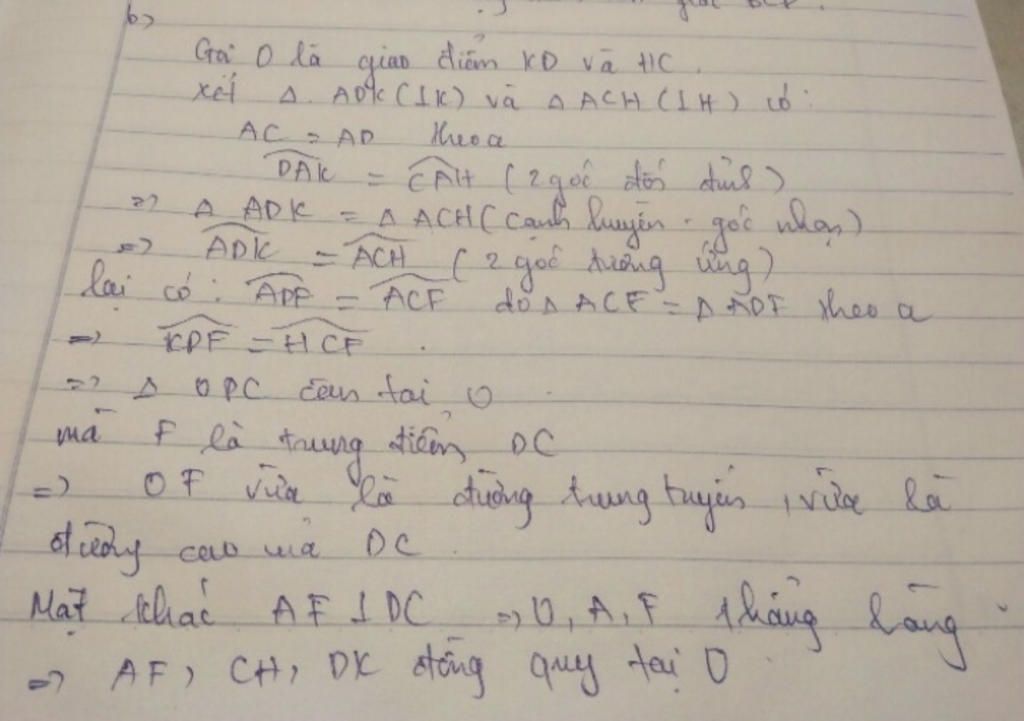 b>
Gọi O là giao điểm KD và HC.
Xét Δ ADK (⊥K) và Δ ACH (⊥H) có:
AC = AD theo a
DAK = CAH (2 góc đối đỉnh)
=> Δ ADK = Δ ACH (cạnh huyền - góc nhọn)
=> ADK = ACH (2 góc tương ứng)
lại có: ADF = ACF do Δ ACF = Δ ADF theo a
=> KDF = HCF.
=> Δ ODC cân tại O.
mà F là trung điểm DC
=> OF vừa là đường trung tuyến, vừa là
đường cao DC.
Mặt khác AF ⊥ DC => O, A, F thẳng hàng
=> AF, CH, DK đồng quy tại O.